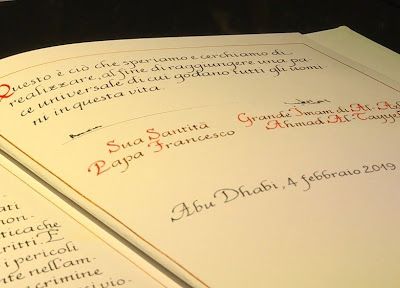 Questo è ciò che speriamo e cerchiamo di
realizzare, al fine di raggiungere una pa
ce universale di cui godano tutti gli uomi
ni in questa vita.
Sua Santità
Papa Francesco
Grande Imam di Al-A
Ahmad Al-Tayye
Abu Dhabi, 4 febbraio 2019
ati
non.
tica che
ritti. E
i pericoli
nte nell'am.
crimine